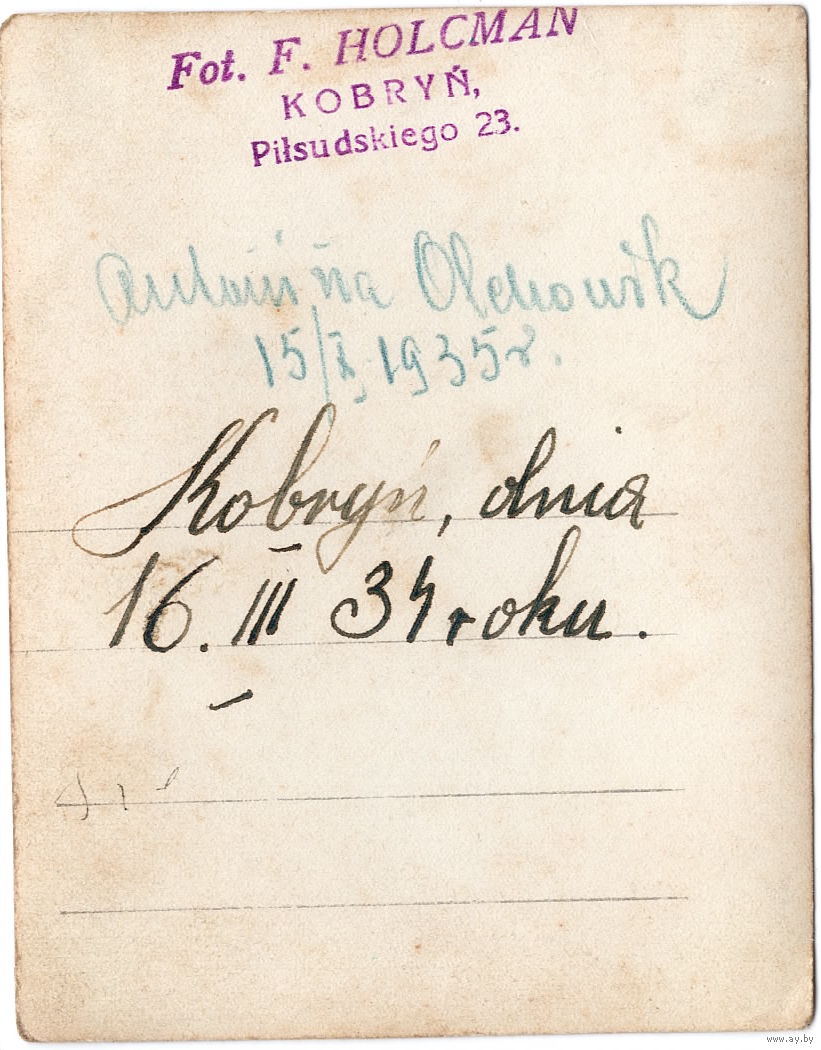 Fot. F. HOLCMAN
KOBRYŃ,
Piłsudskiego 23.
Olchowik
1935r.
Kobryń, dnia
16. III 34 roku.
www.ay.by